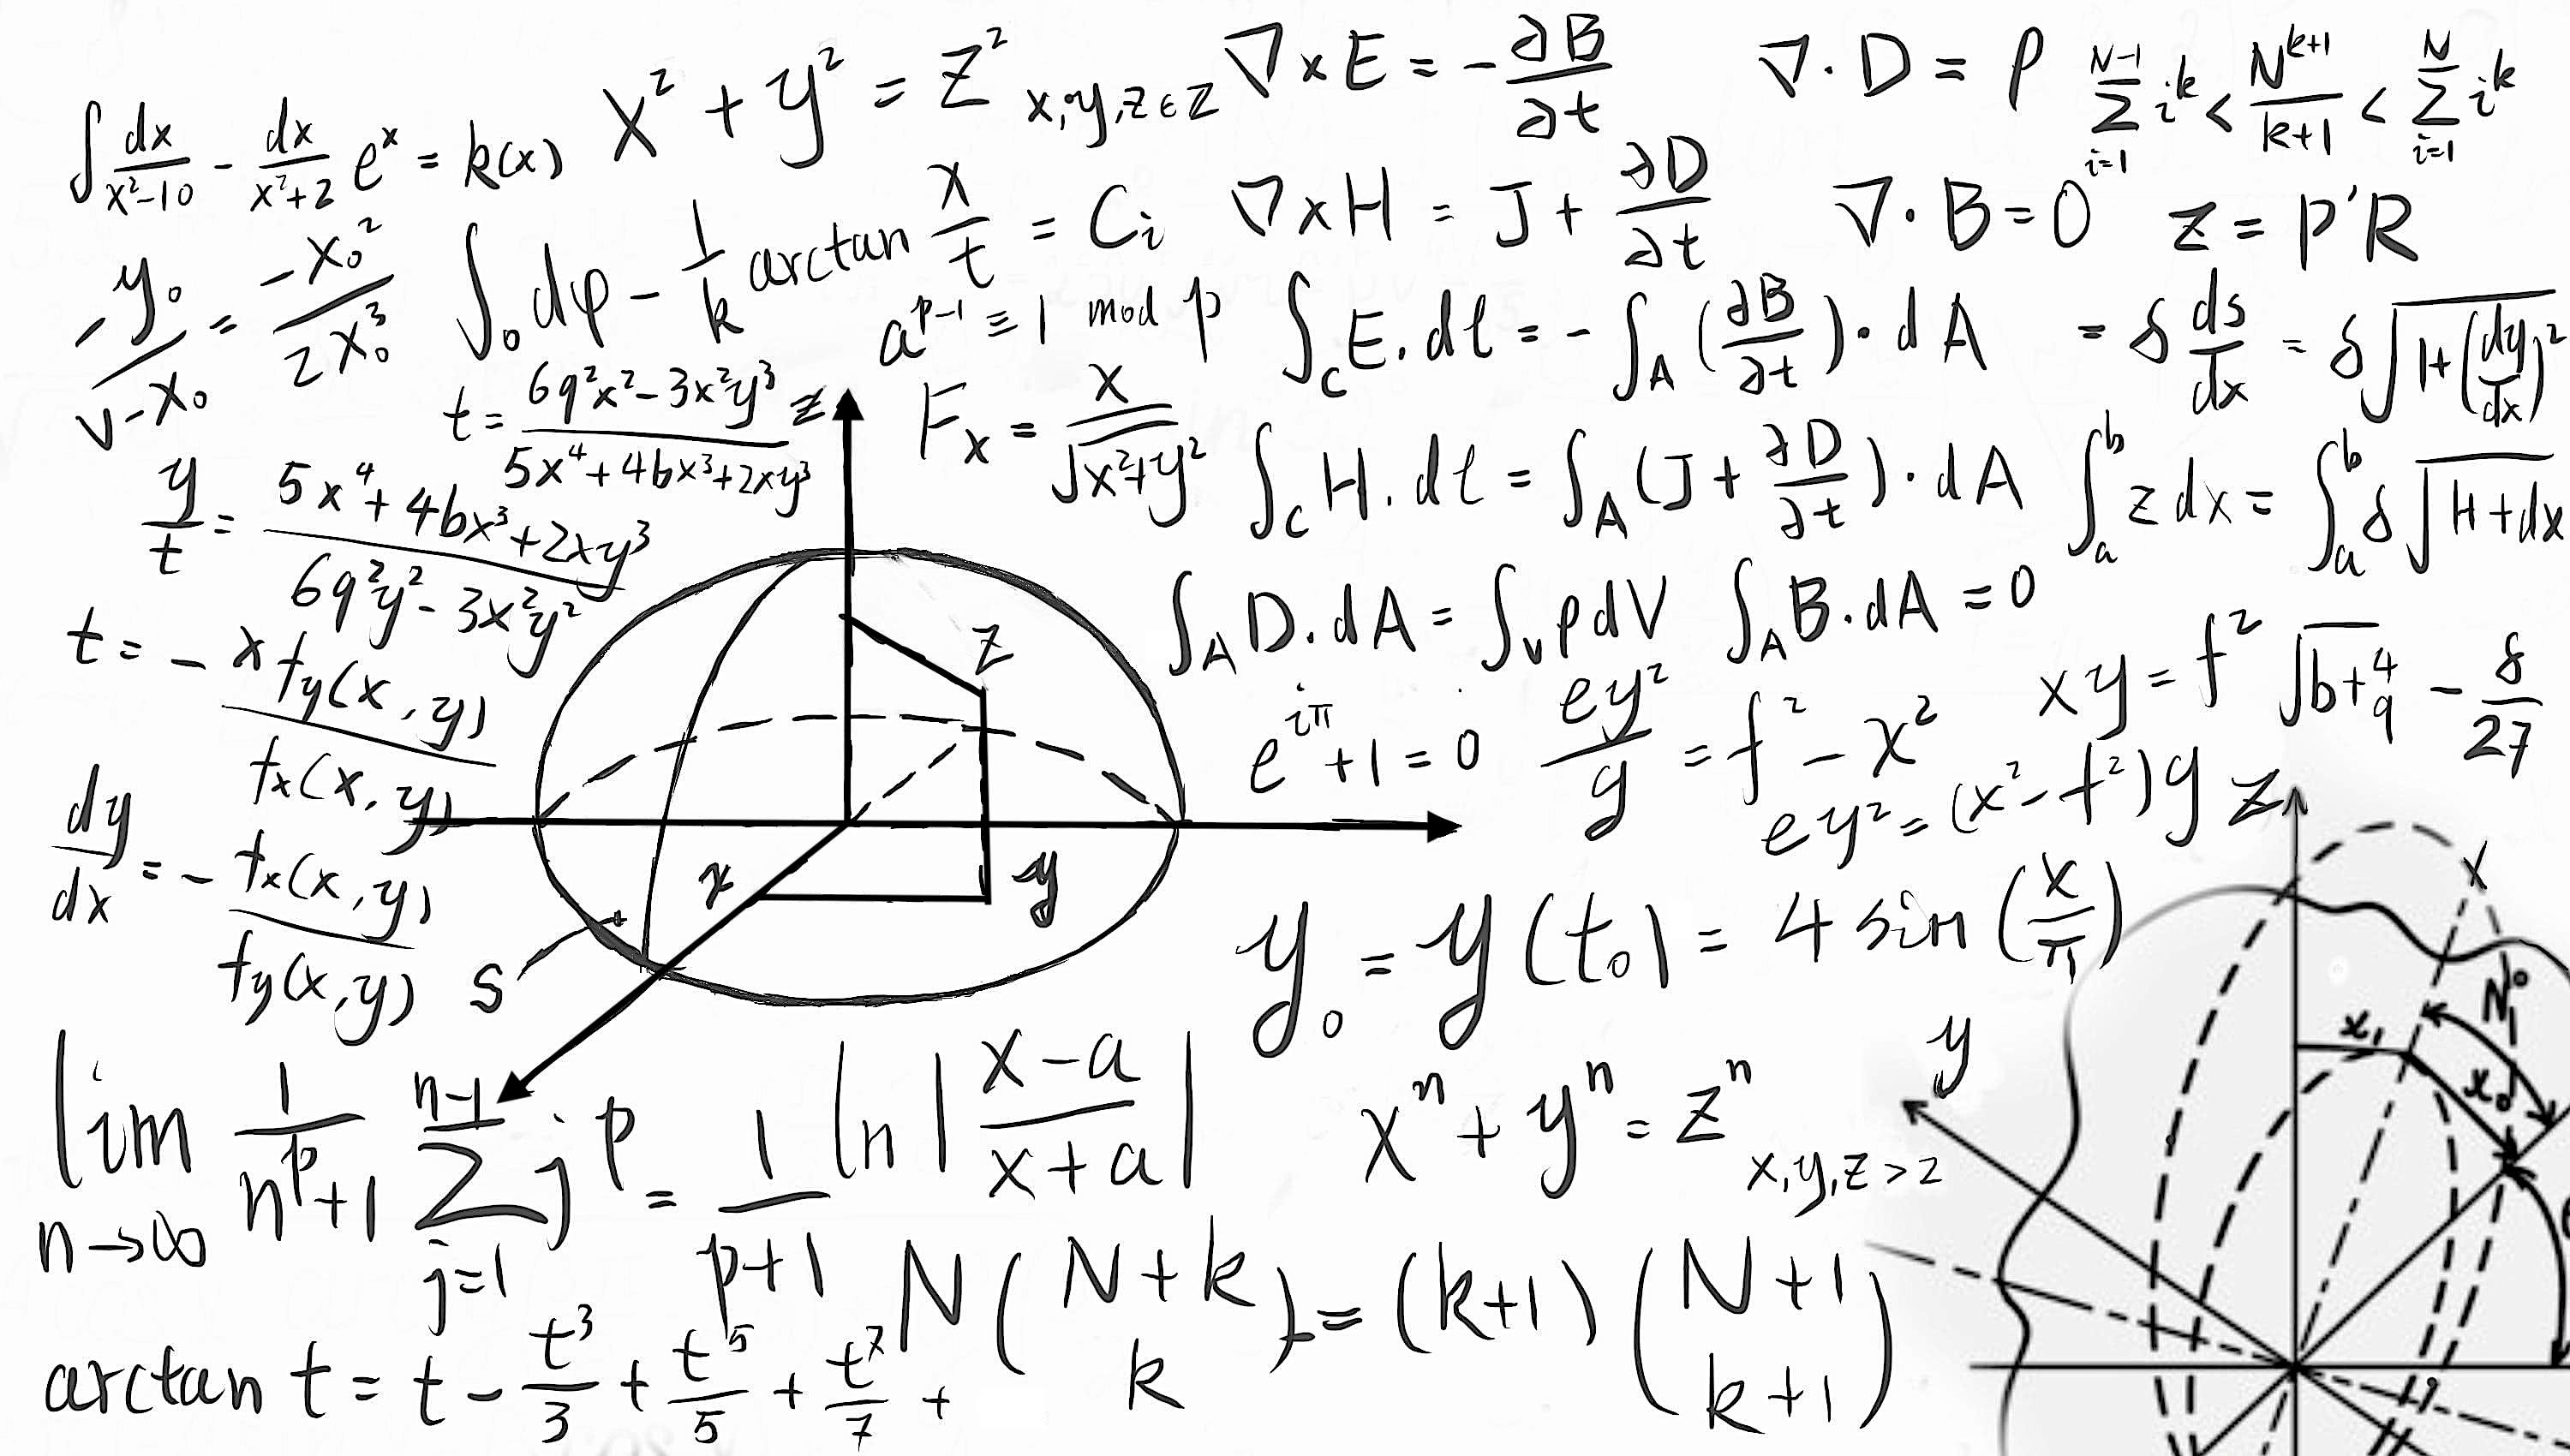 ∫ dx/(x²-10) - dx/(x²+2) eˣ = k(x)
x² + y² = z² x,y,z∈Z
∇×E = -∂B/∂t
∇·D = ρ
∑_{i=1}^{N-1} iᵏ < N^{k+1}/(k+1) < ∑_{i=1}^{N} iᵏ
-y₀/(v-x₀) = -x₀²/(2x₀³)
∫₀ dφ - 1/k arctan x/t = Cᵢ
∇×H = J + ∂D/∂t
∇·B = 0
z = p'R
a^{p-1} ≡ 1 mod p
∫_C E.dℓ = -∫_A (∂B/∂t)·dA
= δ ds/dx = δ√(1+(dy/dx)²)
t = (69²x² - 3x²y³)/(5x⁴+4bx³+2xy³)
F_x = x/√(x²+y²)
∫_C H.dℓ = ∫_A (J + ∂D/∂t)·dA
∫_a^b z dx = ∫_a^b δ√(H+dx)
y/t = (5x⁴+4bx³+2xy³)/(69²y² - 3x²y²)
∫_A D.dA = ∫_v ρdV
∫_A B.dA = 0
t = - x f_y(x,y)/f_x(x,y)
e^{iπ}+1=0
ey²/y = f² - x²
xy = f²
√(b+4/9) - 8/27
ey² = (x²-f²)y
dy/dx = - f_x(x,y)/f_y(x,y)
z
z
x
y
s
y₀ = y(t₀) = 4 sin(x/π)
lim_{n→∞} 1/(n^p+1) ∑_{j=1}^{n-1} j^p = 1/(p+1)
ln|(x-a)/(x+a)|
xⁿ + yⁿ = zⁿ x,y,z>2
arctan t = t - t³/3 + t⁵/5 + t⁷/7 +
N(N+k k) = (k+1)(N+1 k+1)
z
x
N°
x₁
x₀
y